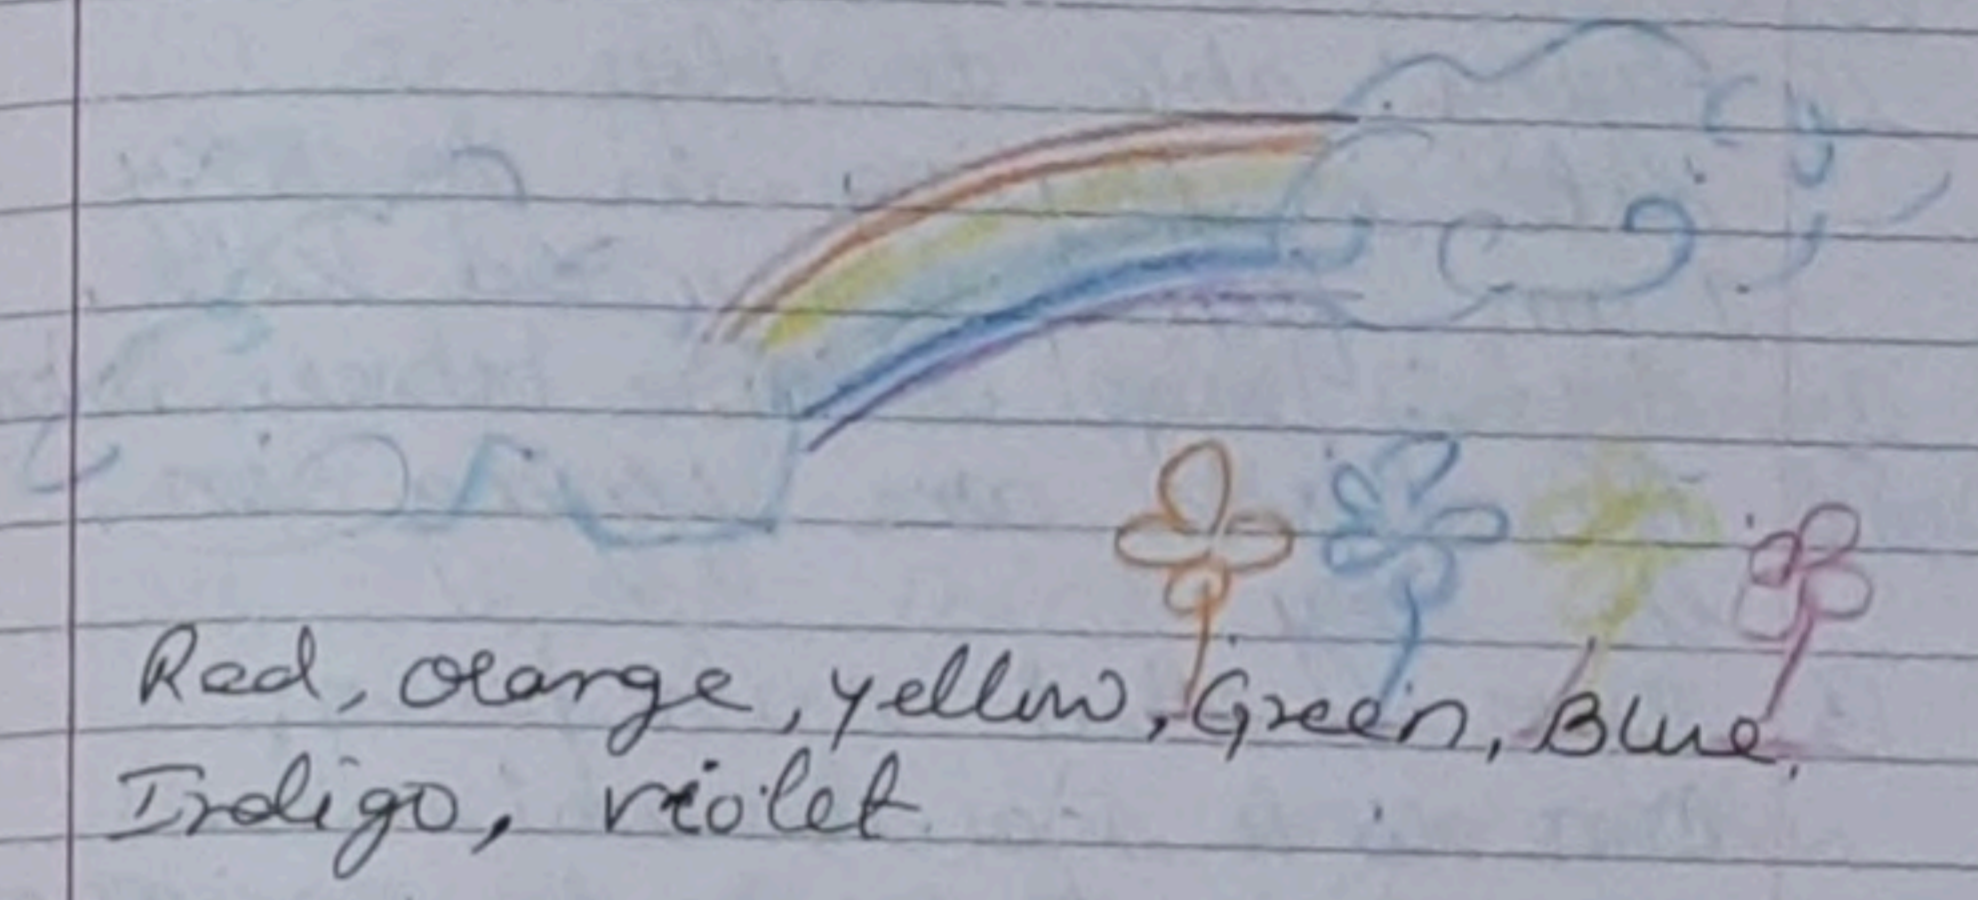 Red, orange, yellow, Green, Blue,
Indigo, violet